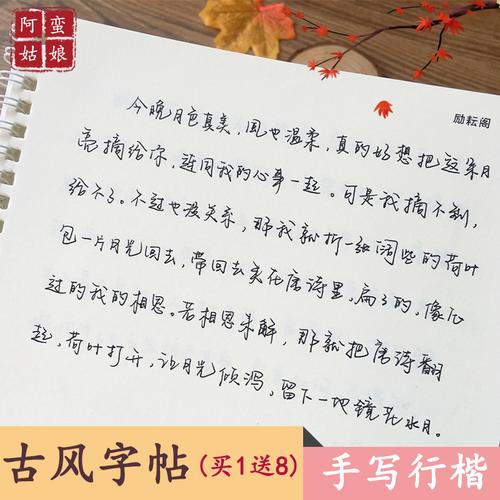 阿蛮
姑娘
励耘阁
今晚月色真美，风也温柔，真的好想把这朵月
亮摘给你，连同我的心事一起。可是我摘不到，
给不了。不过也没关系，那我就折一张阔些的荷叶
包一片月光回去，带回去夹在唐诗里，扁了的，像压
过的我的相思。若相思未解，那就把唐诗翻
起，荷叶打开，让月光倾泻，留下一地镜花水月。
古风字帖(买1送8)
手写行楷